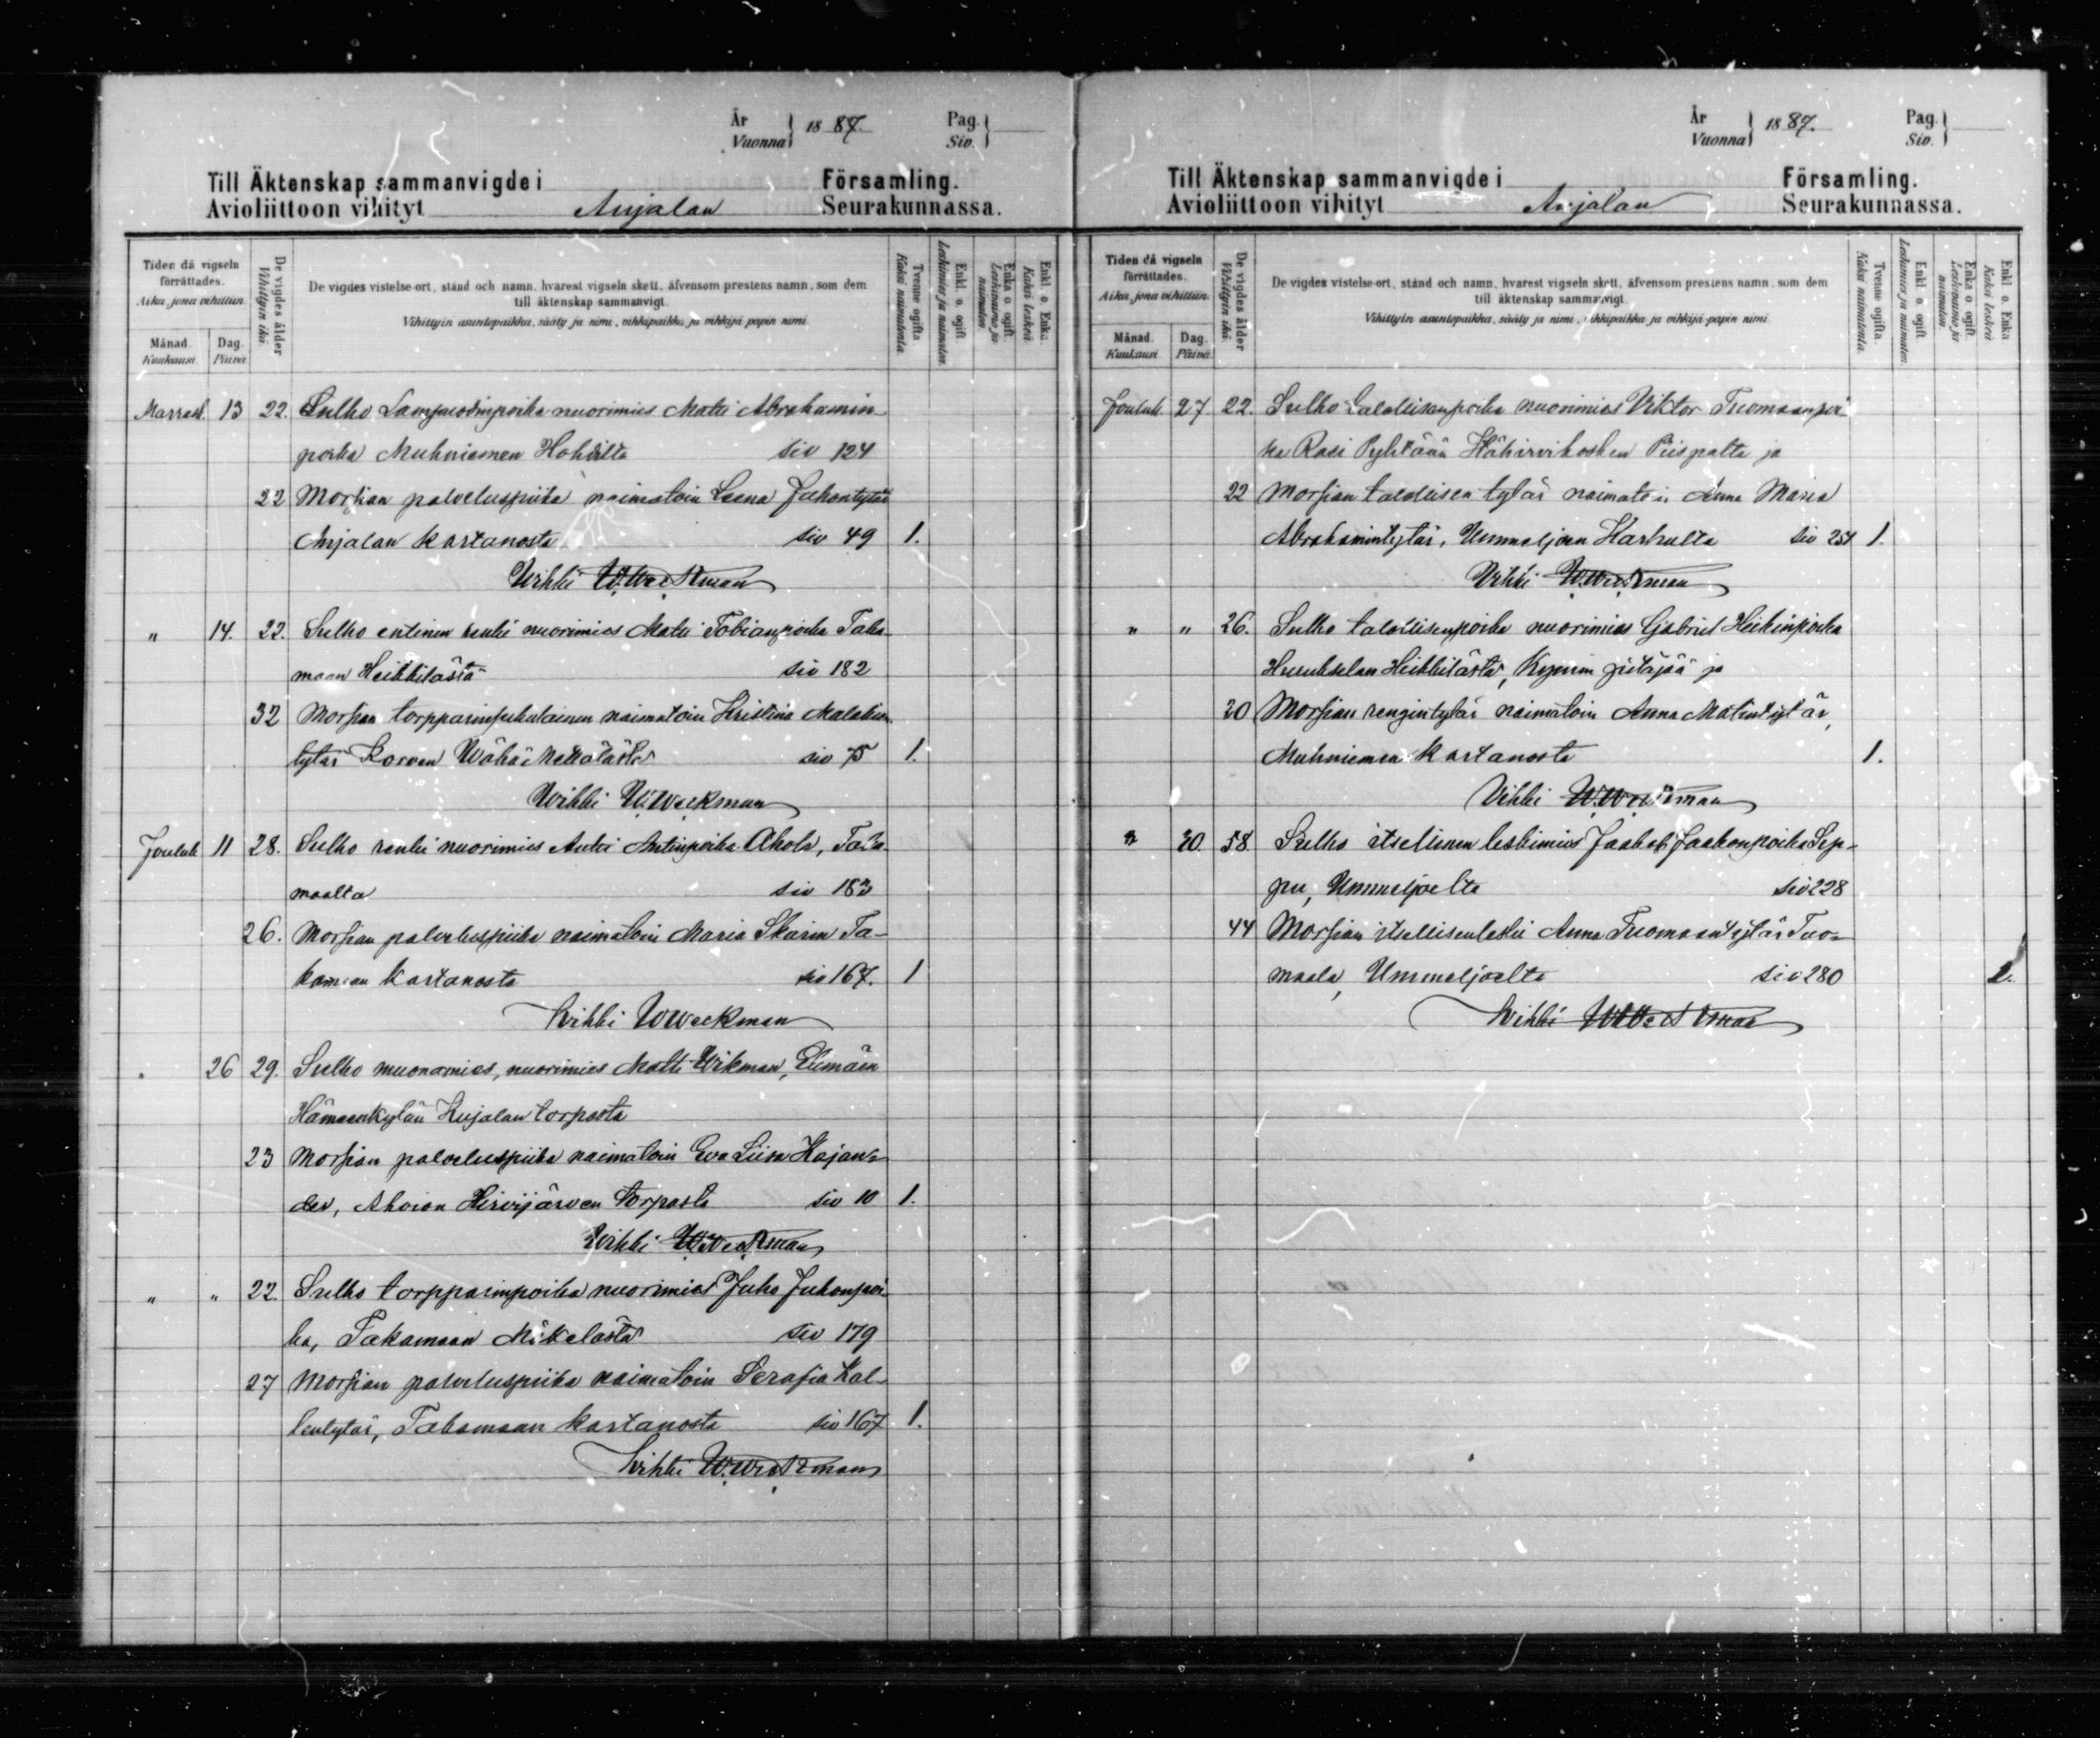 År
Vuonna } 1887.
Pag.
Siv. }
Till Äktenskap sammanvigde i Församling.
Avioliittoon vihityt Anjalan Seurakunnassa.
Tiden då vigseln förrättades.
Aika, jona vihittiin.
Månad.
Kuukausi.
Dag.
Päivä.
De vigdes ålder
Vihittyin ikä.
De vigdes vistelse-ort, stånd och namn, hvarest vigseln skett, äfvensom prestens namn, som dem
till äktenskap sammanvigt.
Vihittyin asuntopaikka, sääty ja nimi, vihkipaikka ja vihkijä-papin nimi.
Tvenne ogifta.
Kaksi naimatonta.
Enkl. o. ogift
Leskimies ja naimaton.
Enka o. ogift.
Leskivaimo ja naimaton.
Enkl. o. Enka.
Kaksi leskeä.
Marrask. 13 22. Sulho Lampuodinpoika nuorimies Matti Abrahamin
poika Muhniemen siv 124
22 Morsian palveluspiika naimatoin Leena Juhontytär
Anjalan kartanosta siv 49 1.
Wihki W. Weckman
" 14. 22. Sulho entinen renki nuorimies Matti Tobianpoika Taka
maan Heikkilästä siv 182
32 Morsian naimatoin Kristina
tytär Korven Wähä siv 75 1.
Wihki W. Weckman
Jouluk 11 28. Sulho renki nuorimies Antti Antinpoika Ahola, Taka
maalta siv 183
26. Morsian palveluspiika naimatoin Maria Skarin Ta-
kamaan kartanosta siv 167. 1
Wihki W Weckman
" 26 29. Sulho muonamies, nuorimies Matti Wikman, Elimäen
Hämeenkylän Kujalan torpasta
23 Morsian palveluspiika naimatoin Eva Liisa Kajan-
der, Ahvion Hirvijärven torpasta siv 10 1.
Wihki W Weckman
" " 22. Sulho torpparinpoika nuorimies Juho Juhonpoi
ka, Takamaan Mikelästä siv 179
27 Morsian palveluspiika naimatoin Serafia Kal-
lentytär, Takamaan kartanosta siv 167 1.
Wihki W. Weckman
År
Vuonna } 1887.
Pag.
Siv. }
Till Äktenskap sammanvigde i Församling.
Avioliittoon vihityt Anjalan Seurakunnassa.
Tiden då vigseln förrättades.
Aika, jona vihittiin.
Månad.
Kuukausi.
Dag.
Päivä.
De vigdes ålder
Vihittyin ikä.
De vigdes vistelse-ort, stånd och namn, hvarest vigseln skett, äfvensom prestens namn, som dem
till äktenskap sammanvigt.
Vihittyin asuntopaikka, sääty ja nimi, vihkipaikka ja vihkijä-papin nimi.
Tvenne ogifta.
Kaksi naimatonta.
Enkl. o. ogift
Leskimies ja naimaton.
Enka o. ogift.
Leskivaimo ja naimaton.
Enkl. o. Enka
Kaksi leskeä
Jouluk 27 22. Sulho talollisenpoika nuorimies Viktor Tuomaanpoi
ka Rasi Pyhtään Hähirvikosken Piispalta ja
22 Morsian talollisen tytär naimatoin Anna Maria
Abrahamintytär, Ummeljoen Karhulta siv 254 1.
Vihki W. Weckman
" " 26. Sulho talollisenpoika nuorimies Gabriel Heikinpoika
Hurukselan Heikkilästä, Kymin pitäjää ja
20 Morsian rengintytär naimatoin Anna Matintytär,
Muhniemen kartanosta 1.
Vihki W. Weckman
" 30. 58. Sulho itsellinen leskimies Jaakob Jaakonpoika Sep-
pu, Ummeljoelta siv 228
44 Morsian itsellisenleski Anna Tuomaantytär Tuo-
maala, Ummeljoelta siv 280 1.
Wihki W Weckman